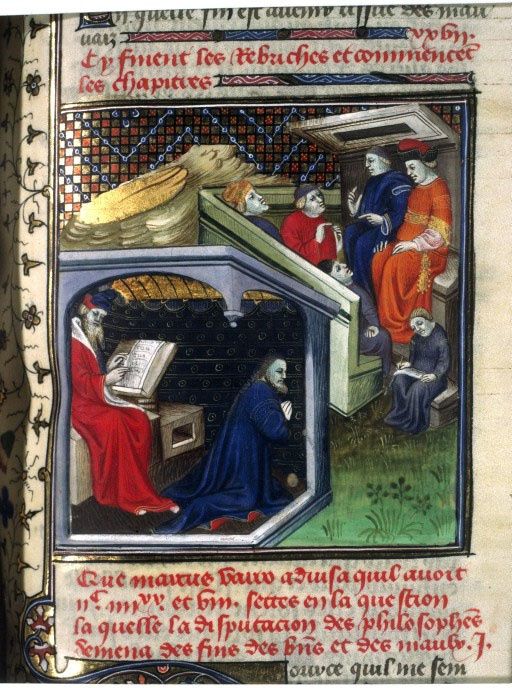 En quelle fin est avenir
uaiz xxviij.
Cy finent les Rebriches et commencent
les chapitres
Que marcus varro aduisa quil auoit
ijᶜ iiijˣˣ et viij. sectes en la question
la quelle la disputacion des philosophes
demena des fins des bñs et des maulx. j.
ource quil me sem